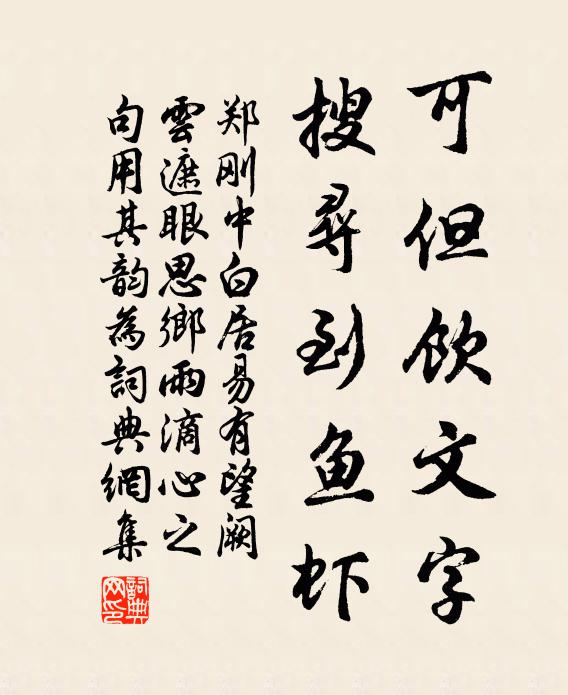 可但饮文字
搜寻到鱼虾
郑刚中白居易有望阙
雲遮眼思鄉雨滴心之
句用其韵為詞典網集
詞典網印